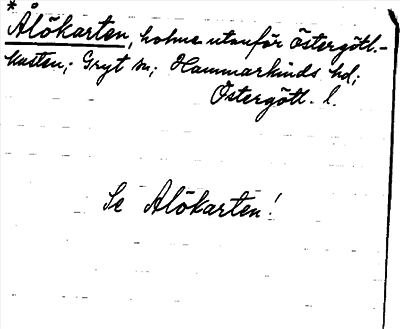 *
Ålökarten, holme utanför Östergötl.-
kusten; Gryt sn; Hammarkinds hd;
Östergötl. l.
Se Alökarten!